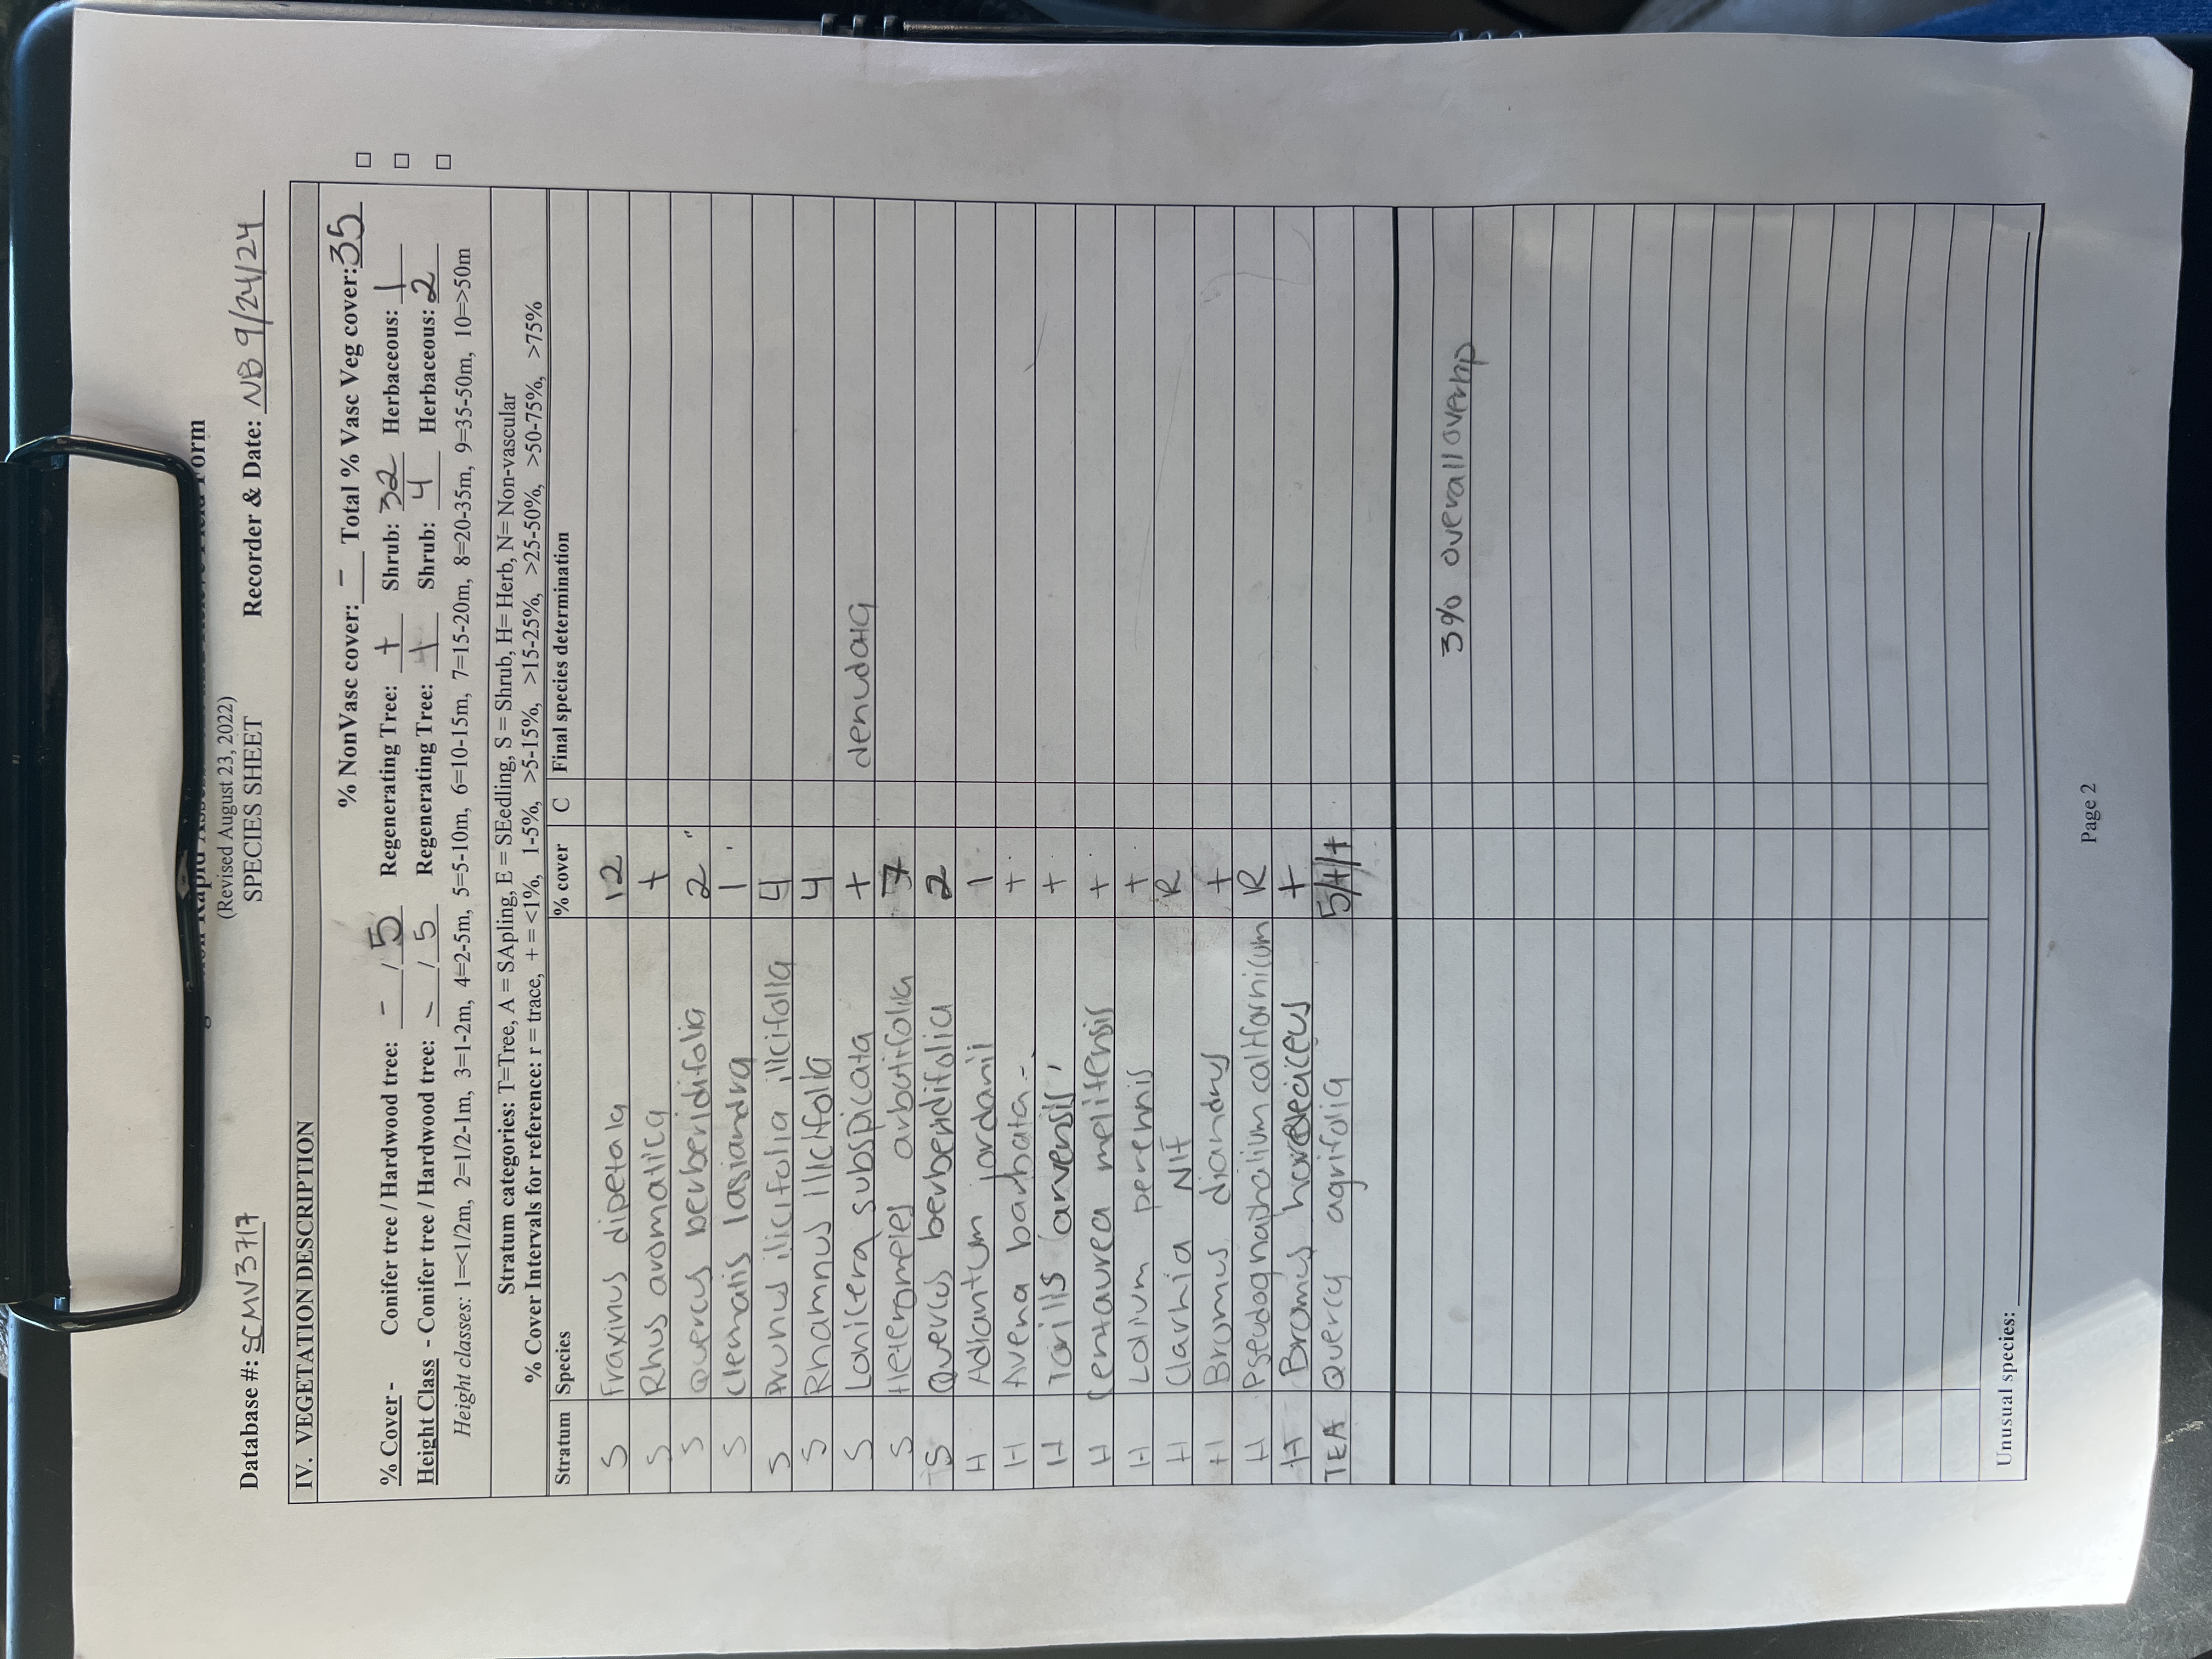 (Revised August 23, 2022)
SPECIES SHEET
Database #: SCMV3717 Recorder & Date: NB 9/24/24
IV. VEGETATION DESCRIPTION
% NonVasc cover: - Total % Vasc Veg cover: 35
% Cover - Conifer tree / Hardwood tree: - / 5 Regenerating Tree: + Shrub: 32 Herbaceous: 1
Height Class - Conifer tree / Hardwood tree: - / 5 Regenerating Tree: Shrub: 4 Herbaceous: 2
Height classes: 1=<1/2m, 2=1/2-1m, 3=1-2m, 4=2-5m, 5=5-10m, 6=10-15m, 7=15-20m, 8=20-35m, 9=35-50m, 10=>50m
Stratum categories: T=Tree, A = SApling, E = SEedling, S = Shrub, H= Herb, N= Non-vascular
% Cover Intervals for reference: r = trace, + = <1%, 1-5%, >5-15%, >15-25%, >25-50%, >50-75%, >75%
Stratum Species % cover C Final species determination
S Fraxinus dipetala 12
S Rhus aromatica +
S Quercus berberidifolia 2
S Clematis lasiandra 1
S Prunus ilicifolia ilicifolia 4
S Rhamnus ilicifolia 4
S Lonicera subspicata + denudata
S Heteromeles arbutifolia 7
S Quercus berberidifolia 2
H Adiantum jordanii 1
H Avena barbata +
H Torilis arvensis +
H Centaurea melitensis +
H Lolium perennis +
H Clarkia NIF R
H Bromus diandrus +
H Pseudognaphalium californicum R
H Bromus +
TEA Quercus agrifolia 5/+/+
3% overall overlap
Unusual species:
Page 2